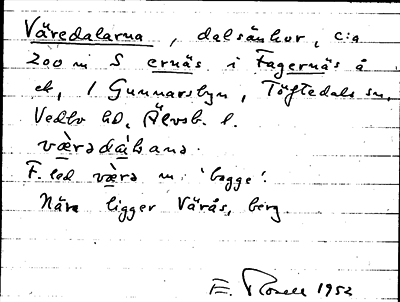 Väredalarna, dalsänkor, c:a
200 m S ernäs i Fagernäs å
ek, 1 Gunnarsbyn, Töftedals sn,
Vedbo hd, Älvsb. l.
værədàɫana.
F. led værə m. 'bagge'.
Nära ligger Värås, berg
E. Rosell 1952